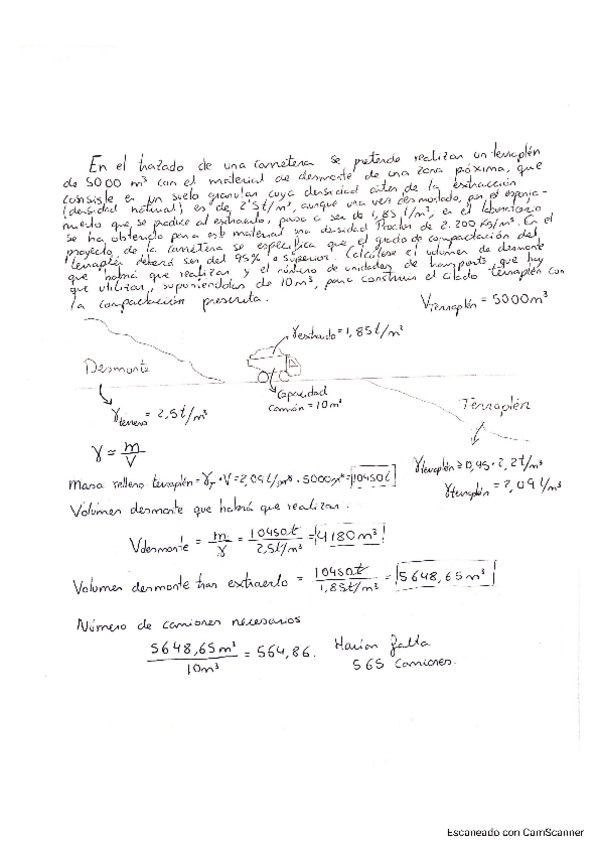 En el trazado de una carretera se pretende realizar un terraplén
de 5000 m³ con el material de desmonte de una zona próxima, que
consiste en un suelo granular cuya densidad antes de la extracción
(densidad natural) es de 2'5t/m³, aunque una vez desmontado, por el esponja-
miento que se produce al extraerlo, pasa a ser de 1,85 t/m³, en el laboratorio
se ha obtenido para este material una densidad Proctor de 2.200 Kg/m³. En el
proyecto de la carretera se especifica que el grado de compactación del
terraplén deberá ser del 95% o superior. Calcúlese el volumen de desmonte
que habrá que realizar y el número de unidades de transporte que hay
que utilizar, suponiéndolas de 10m³, para construir el citado terraplén con
la compactación prescrita.
Vterraplén = 5000m³
γextraido = 1,85t/m³
Desmonte
Capacidad
camión = 10m³
Terraplén
γterreno = 2,5t/m³
γ = m/V
γterraplén ≥ 0,95 · 2,2t/m³
γterraplén = 2,09t/m³
Masa relleno terraplén = γT · V = 2,09t/m³ · 5000m³ = 10450t
Volúmen desmonte que habrá que realizar.
Vdesmonte = m/γ = 10450t/2,5t/m³ = 4180m³
Volumen desmonte tras extraerlo = 10450t/1,85t/m³ = 5648,65m³
Número de camiones necesarios
5648,65m³/10m³ = 564,86. Harían falta
565 camiones.
Escaneado con CamScanner